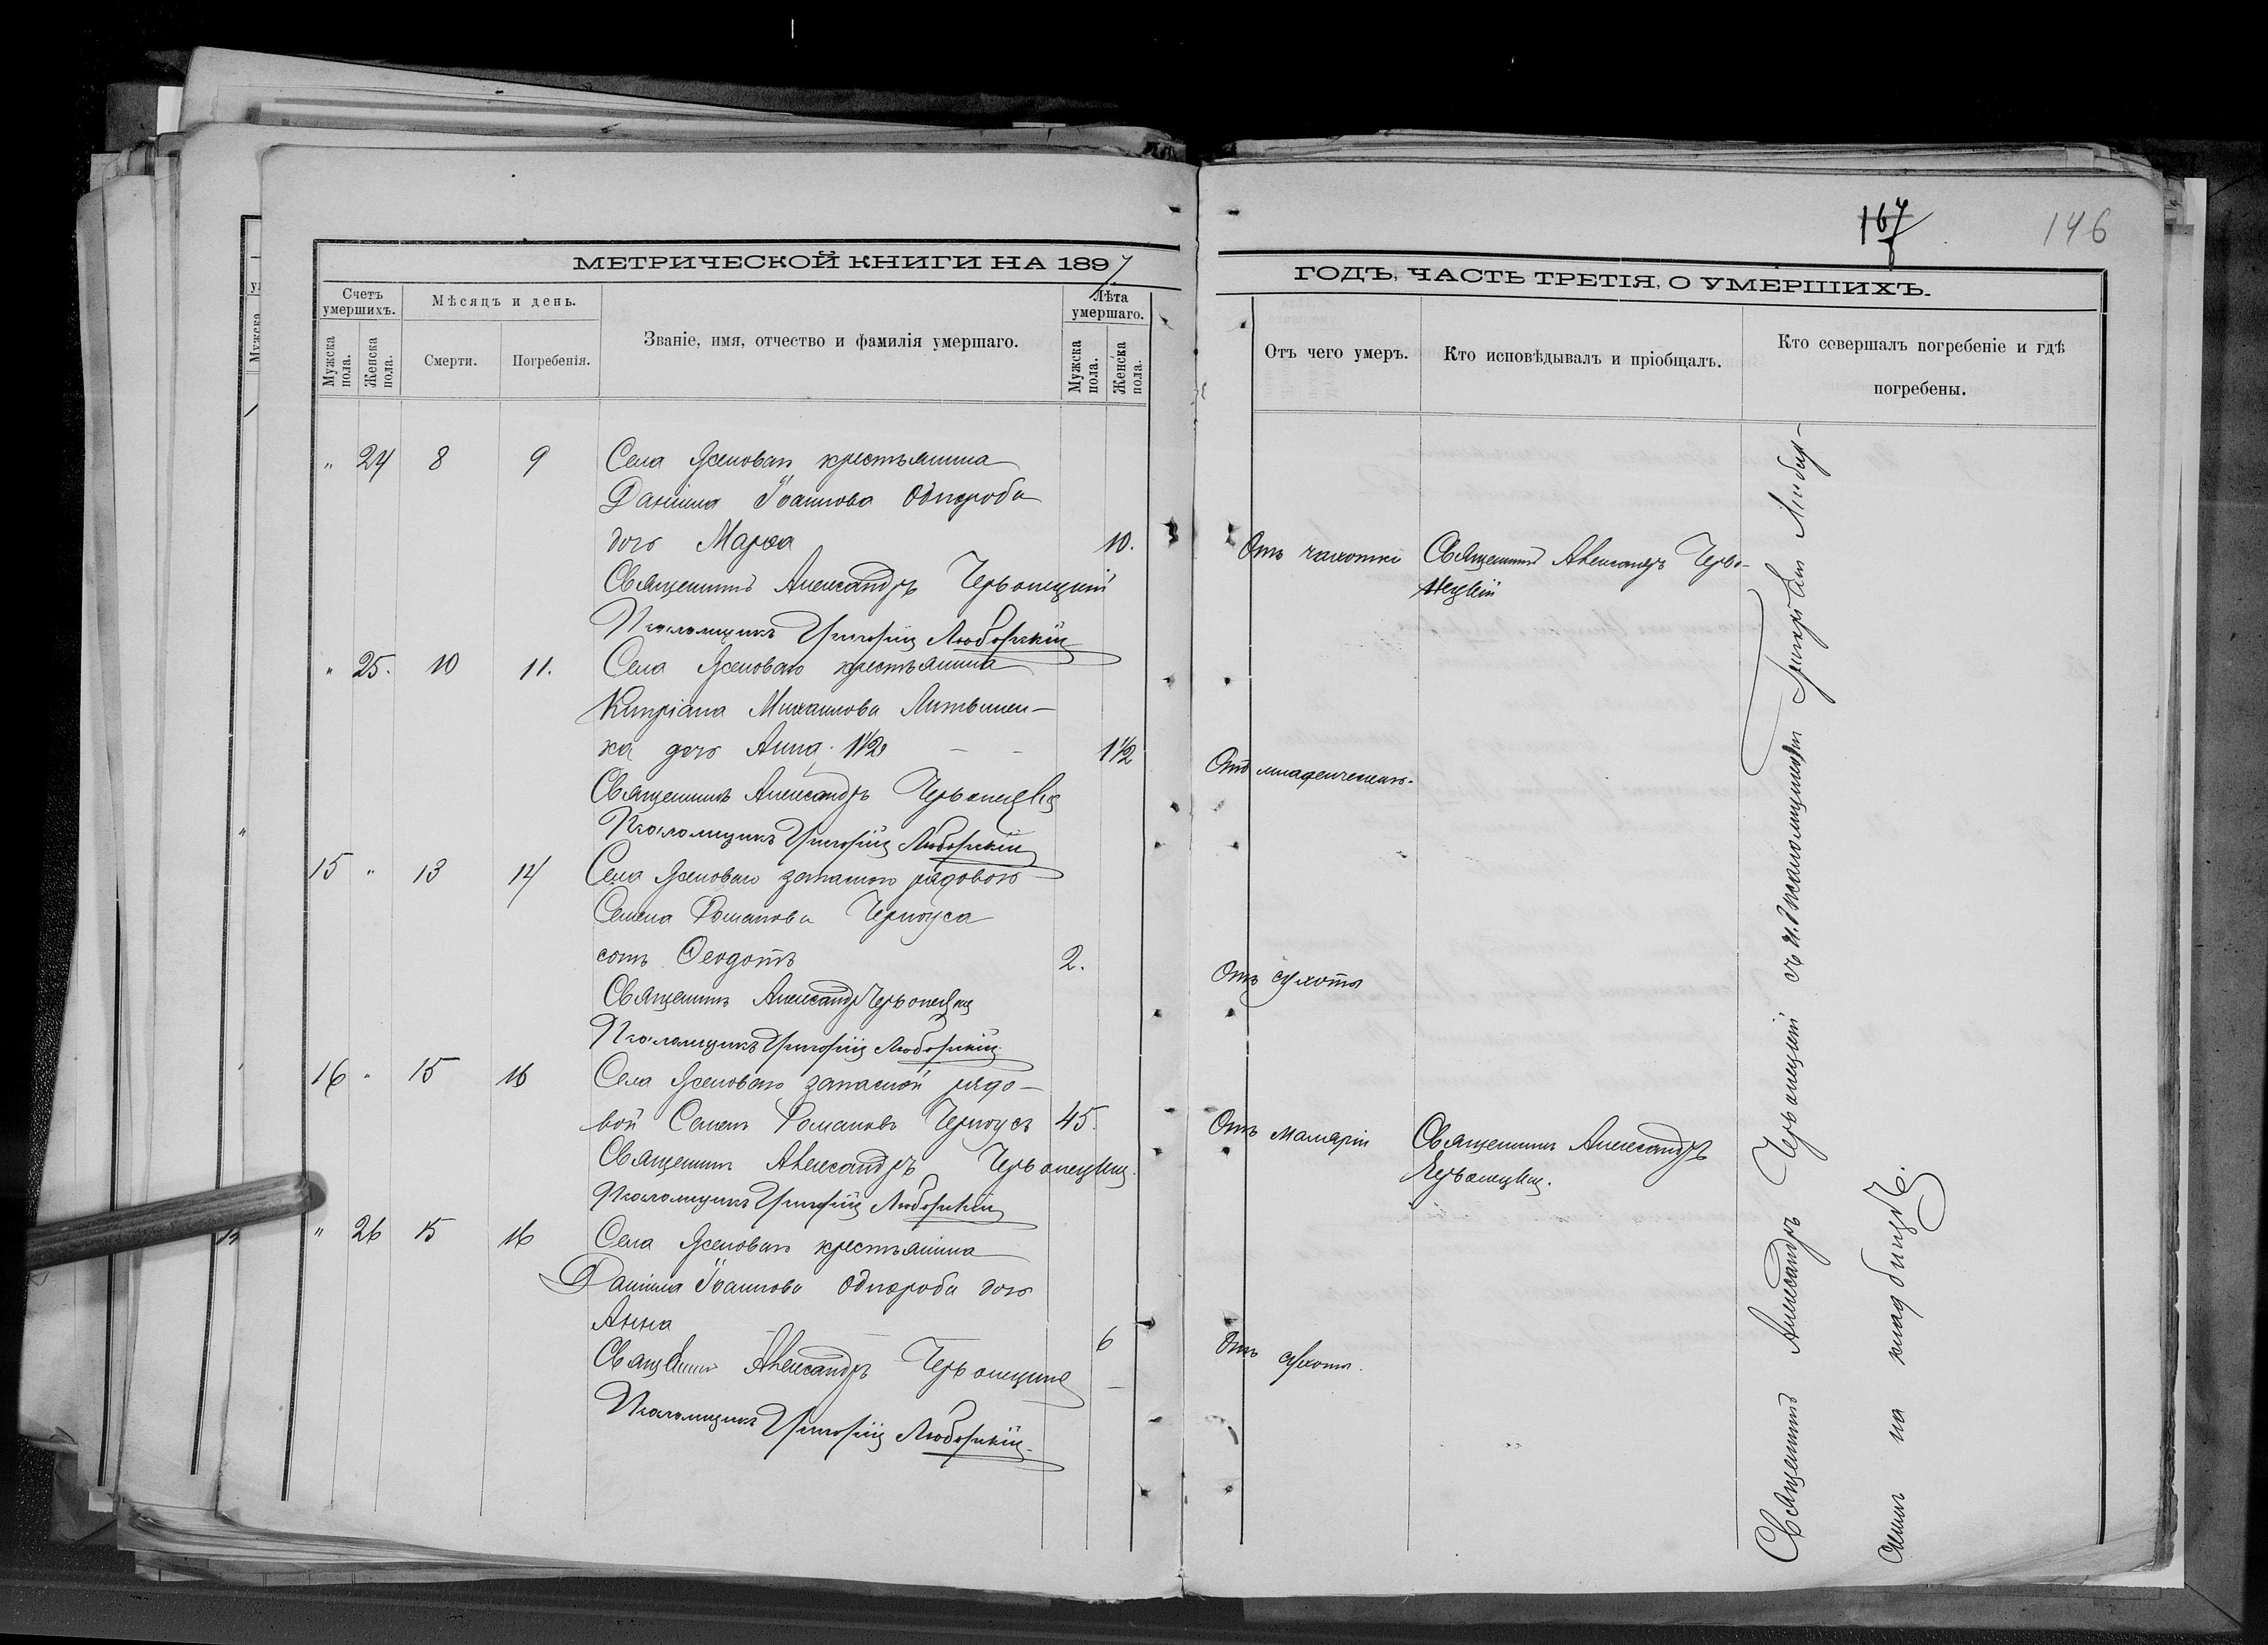 МЕТРИЧЕСКОЙ КНИГИ НА 1897
Счетъ умершихъ.
Мѣсяцъ и день.
Званіе, имя, отчество и фамилія умершаго.
Лѣта умершаго.
Мужска пола.
Женска пола.
Смерти.
Погребенія.
Мужска пола.
Женска пола.
" 24 8 9 Села крестьянина
Даніила Іоаннова Однороба
дочь Марѳа 10.
Священникъ Александръ Червонецкій
Псаломщикъ Григорій
" 25. 10 11. Села крестьянина
Кипріана Михаилова Литвинен-
ка дочь Анна. 1 1/2 - - 1 1/2
Священникъ Александръ Червонецкій
Псаломщикъ Григорій
15 " 13 14 Села запаснаго рядового
Семена Романова Черноуса
сынъ Ѳеодотъ 2.
Священникъ Александръ Червонецкій
Псаломщикъ Григорій
16 " 15 16 Села запасной рядо-
вой Семенъ Романовъ Черноусъ 45.
Священникъ Александръ Червонецкій.
Псаломщикъ Григорій
" 26 15 16 Села крестьянина
Даніила Іоаннова Однороба дочь
Анна 6
Священникъ Александръ Червонецкій
Псаломщикъ Григорій
167
146
ГОДЪ, ЧАСТЬ ТРЕТІЯ, О УМЕРШИХЪ.
Отъ чего умеръ.
Кто исповѣдывалъ и пріобщалъ.
Кто совершалъ погребеніе и гдѣ
погребены.
Отъ чахотки Священникъ Александръ Черво-
нецкій
Отъ младенческаго.
Отъ сухоты
Отъ маляріи Священникъ Александръ
Червонецкій.
Отъ сухоты.
Священникъ Александръ Червонецкій съ и. д. псаломщикомъ Григоріемъ
на кладбищѣ.